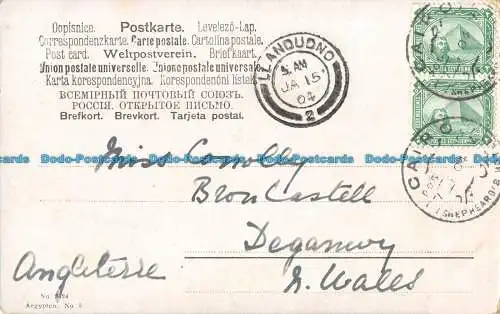 Dopisnice. Postkarte. Levelező-Lap.
Correspondenzkarte. Carte postale. Cartolina postale.
Post card. Weltpostverein. Briefkaart.
Union postale universelle. Unione postale universale
Karta korespondencyjna. Korespondenční lístek.
ВСЕМІРНЫЙ ПОЧТОВЫЙ СОЮЗЪ.
РОССІЯ. ОТКРЫТОЕ ПИСЬМО.
Brefkort. Brevkort. Tarjeta postal.
LLANDUDNO
JA 15
04
2
CAIRO
CAIRO
(SHEPHEARD'S
Dodo-Postcards Dodo-Postcards Dodo-Postcards Dodo-Postcards
Miss Conolly
Bron Castell
Deganwy
N. Wales
Angleterre
Aegypten. No